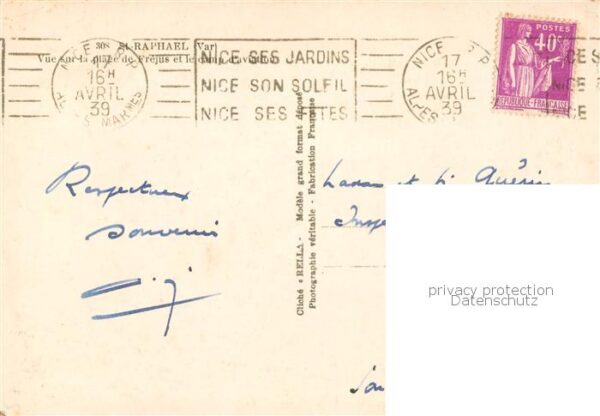 308 St-RAPHAEL (Var)
Vue sur la plage de Fréjus et le camp d'aviation
NICE R.P.
16H
AVRIL
39
ALPES MARITIMES
NICE SES JARDINS
NICE SON SOLEIL
NICE SES FÊTES
NICE R.P.
17
16H
AVRIL
39
ALPES
POSTES
40c
RÉPUBLIQUE-FRANÇAISE
CE S
NICE
CE
Cliché « RELLA » - Modèle grand format déposé
Photographie véritable - Fabrication Française
Respectueux
souvenir
et
Guérin
Insp
privacy protection
Datenschutz